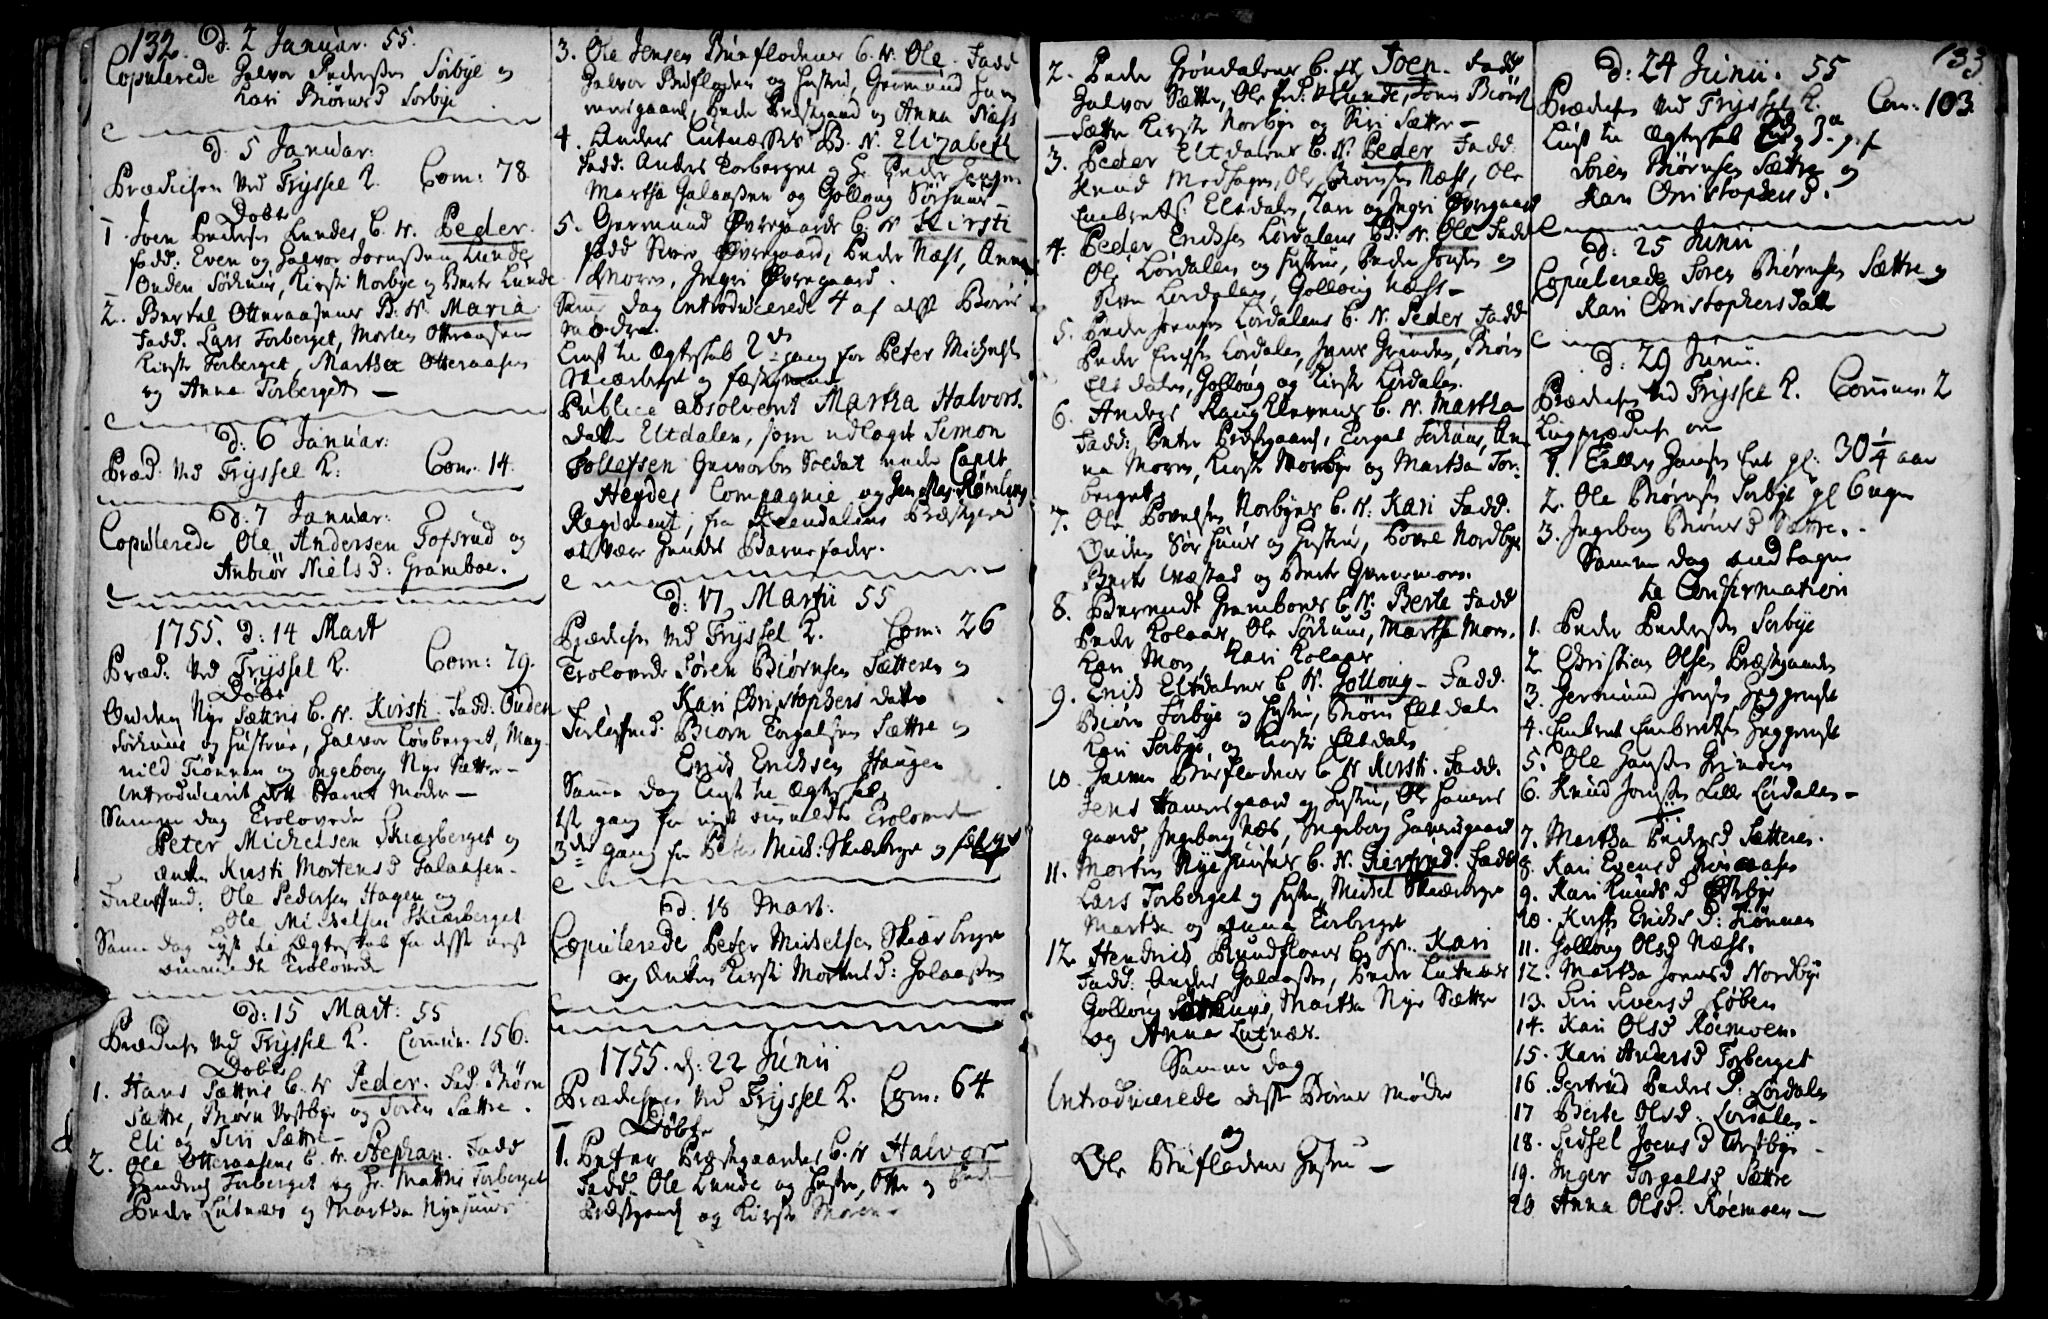 132.
D: 2 Januar. 55.
Copulerede Halvor Pedersen Sørbye og
Kari Biørnsd Sorbye
D. 5 Januar:
Prædiken ved Tryssel K. Com: 78
Døbt
1 Joen Pedersen Lundes B. N. Peder.
Fadd. Even og Halvor Joensen Lunde
Onden Sørhuus, Kirsti Norbye og Berte Lunde
2. Bertel Otteraasens B. N. Maria
Fadd. Lars Torberget, Morten Otteraasen
Kirsti Torberget, Martha Otteraasen
og Anna Torberget —
D: 6 Januar:
Præd. ved Tryssel K: Com. 14.
D. 7 Januar:
Copulerede Ole Andersen Tofsrud og
Anbiør Nielsd: Gramboe.
1755. D: 14 Mart
Præd: ved Tryssel K. Com: 79.
Døbt
Onden Nye Sættris B. N. Kirsti. Fadd. Onden
Sørhuus og Hustrue, Halvor Lovberget, Mag-
nild Tiønnen og Ingeborg Nye Sætter —
Introducerit dett Barns Moder —
Samme dag Trolovede
Peter Michelsen Skiærberget og
Enken Kirsti Mortensd Galaasen.
Forlofsmd: Ole Pedersen Hagen og
Ole Michelsen Skiærberget
Samme dag lyst til Ægteskab for disse nyst
anmeldte Trolovede
D: 15 Mart: 55
Prædiken ved Tryssel K. Commun. 156.
Døbt
1. Hans Sættris B. N. Peder. Fad. Biørn
Sættre, Biørn Vestbye og Søren Sættre.
Eli og Siri Sættre —
2. Ole Otteraasens B. N. Stephan. Fadd
Hendrich Torberget og Hr. Mattis Torberget
Peder Lutnæs og Martha Nyehuus
3. Ole Jensen Bruflodens B. N. Ole. Fadd
Halvor Brufloden og Hustrue, Germund Ham
mersgaard, Peder Præstgaard og Anna Næss
4. Anders Lutnæses B. N. Elizabeth
Fadd. Anders Torberget og H. Peder Jensen
Martha Galaasen og Gollaug Sørhuus
5. Germund Øvregaards B. N. Kirsti
Fadd Siver Øvregaard, Peder Næss, Anna
Moren, Ingri Øvregaard.
Samme dag Introducerede 4 af disse Børns
Mødre.
Lyst til Ægteskab 2den gang for Peter Michelsen
Skiærberget og Fæstemøe
Publice absolverit Martha Halvors.
datter Eltdalen, som udlagt Simon
Tollefsen Geworben Soldat under Capit
Heydes Compagnie og General Major Rømlings
Regiment, fra Præstgield
at være hendes Barnefader.
D: 17 Martii 55
Prædiken ved Tryssel K. Com: 26
Trolovede Søren Biørnsen Sætteren og
Kari Christophers datter
Forlofsmd. Biørn Torgalsen Sættre og
Erik Ericksen Haugen
Samme dag lyst til Ægteskab
1st gang for nyst anmeldte Trolovede
3de gang for Peter Mich: Skiærberget og
D. 18 Mart.
Copulerede Peter Michelsen Skiærberget
og Enken Kirsti Mortensd: Galaasen
1755. d: 22 Junii
Prædiken ved Tryssel K. Com: 64
Døbte
1. Peter Præstgaardes B. N. Halvor
Fadd. Ole Lunde og Hustr, Otte og Peder
Præstgaard og Kirsti Moren.
133
2. Peder Grøndalens B. N. Joen. Fadd
Halvor Sættre, Ole Ped: Lunde, Jonas Biørns
Sættre Kirsti Norbye og Siri Sætter —
3. Peder Eltdalens B. N. Peder Fadd.
Knud Modhagen, Ole Biørnsen Næss, Ole
Embretss: Eltdalen, Kari og Ingri Øvregaard
4. Peder Ericksen Lørdalens B. N. Ole Fadd
Ole Lørdalen og Hustrue, Peder Jonsen og
Siren Lørdalen, Gollaug Næss —
5. Peder Jonsen Lørdalens B. N. Peder Fadd
Peder Ericksen Lørdalen, Jens Grinden, Biørn
Eltdalen, Gollaug og Kirsti Lørdalen.
6. Anders Rang Klevens B. N. Martha
Fadd: Peter Præstgaard, Torgal Sørhuus, An-
na Moren, Kirsti Norbye og Martha Tor-
berget
7. Ole Povelsen Norbyes B. N. Kari Fadd.
Onden Sørhuus og Hustrue, Povel Nordbye
Berte og Berte Grinermoen.
8. Berendt Gramboes B. N. Berte Fadd
Peder Kolaas, Ole Sørhuus, Martha Moren.
Kari Moren, Kari Kolaas
9. Erik Eltdalens B. N. Gollaug — Fadd.
Biørn Sørbye og Hustrue, Biørn Eltdalen
Kari Sørbye, og Kirsti Eltdalen
10. Halvor Bruflodens B. N. Kirsti. Fadd.
Jens Hammersgaard og Hustrue, Ole Hammers
gaard, Ingeborg Næss, Ingeborg Hammersgaard
11. Morten Nye Huuses B. N. Giertrud. Fadd
Lars Torberget og Hustrue, Michel Skiærberget
Martha og Anna Torberget
12. Hendrich Brundfloens B. N. Kari
Fadd: Anders Galaasen, Peder Lutnæs
Gollaug, Martha Nye Sætter
og Anna Lutnæs.
Samme dag
Introducerede disse Børns Mødre
og
Ole Bruflodens Hustrue —
D: 24 Junii. 55
Prædiken ved Tryssel K. Com: 103
Lyst til Ægteskab 2d og 3die g. f
Søren Biørnsen Sættre og
Kari Christophersd.
D: 25 Junii
Copulerede Søren Biørnsen Sættre og
Kari Christophersdatt
D: 29 Junii.
Prædiken ved Tryssel K. Commun. 2
Liigprædiken over
1. Hansen gl: 30 1/4 aar
2. Ole Biørnsen Sørbye gl 6 uger
3. Ingeborg Biørnsd Sættre.
Samme dag andtagen
til Confirmation
1. Peder Pedersen Sørbye
2. Christian Olsen Præstgaarden
3. Germund Jonsen
4. Embret Embretsen
5. Ole Hansen Grinden
6. Knud Jonsen Lille Lørdalen —
7. Martha Pedersd Sætteren.
8. Kari Evensd
9. Kari Knudsd Østbye
10. Kirsti Ericks D: Tiønnen
11. Gollaug Olsd Næss.
12. Martha Joensd Nordbye
13. Siri Siversd Løben
14. Kari Olsd Røemoen.
15. Kari Andersd Torberget
16. Gertrud Peders D: Lørdalen
17. Berte Olsd. Lørdalen.
18. Sidsel Joens D Vestbye.
19. Inger Torgalsd Sættre
20 Anna Olsd. Røemoen —